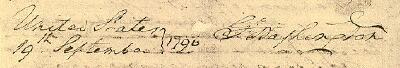 United States
19th September 1796 Go Washington